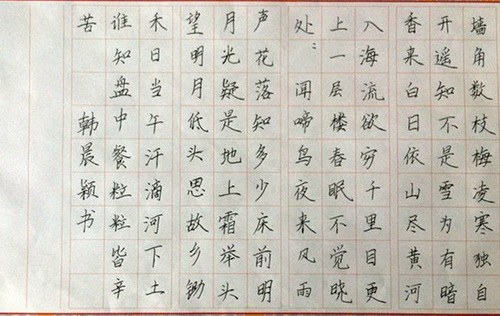 墙角数枝梅凌寒独自
开遥知不是雪为有暗
香来白日依山尽黄河
入海流欲穷千里目更
上一层楼春眠不觉晓
处〻闻啼鸟夜来风雨
声花落知多少床前明
月光疑是地上霜举头
望明月低头思故乡锄
禾日当午汗滴河下土
谁知盘中餐粒粒皆辛
苦 韩晨颖书